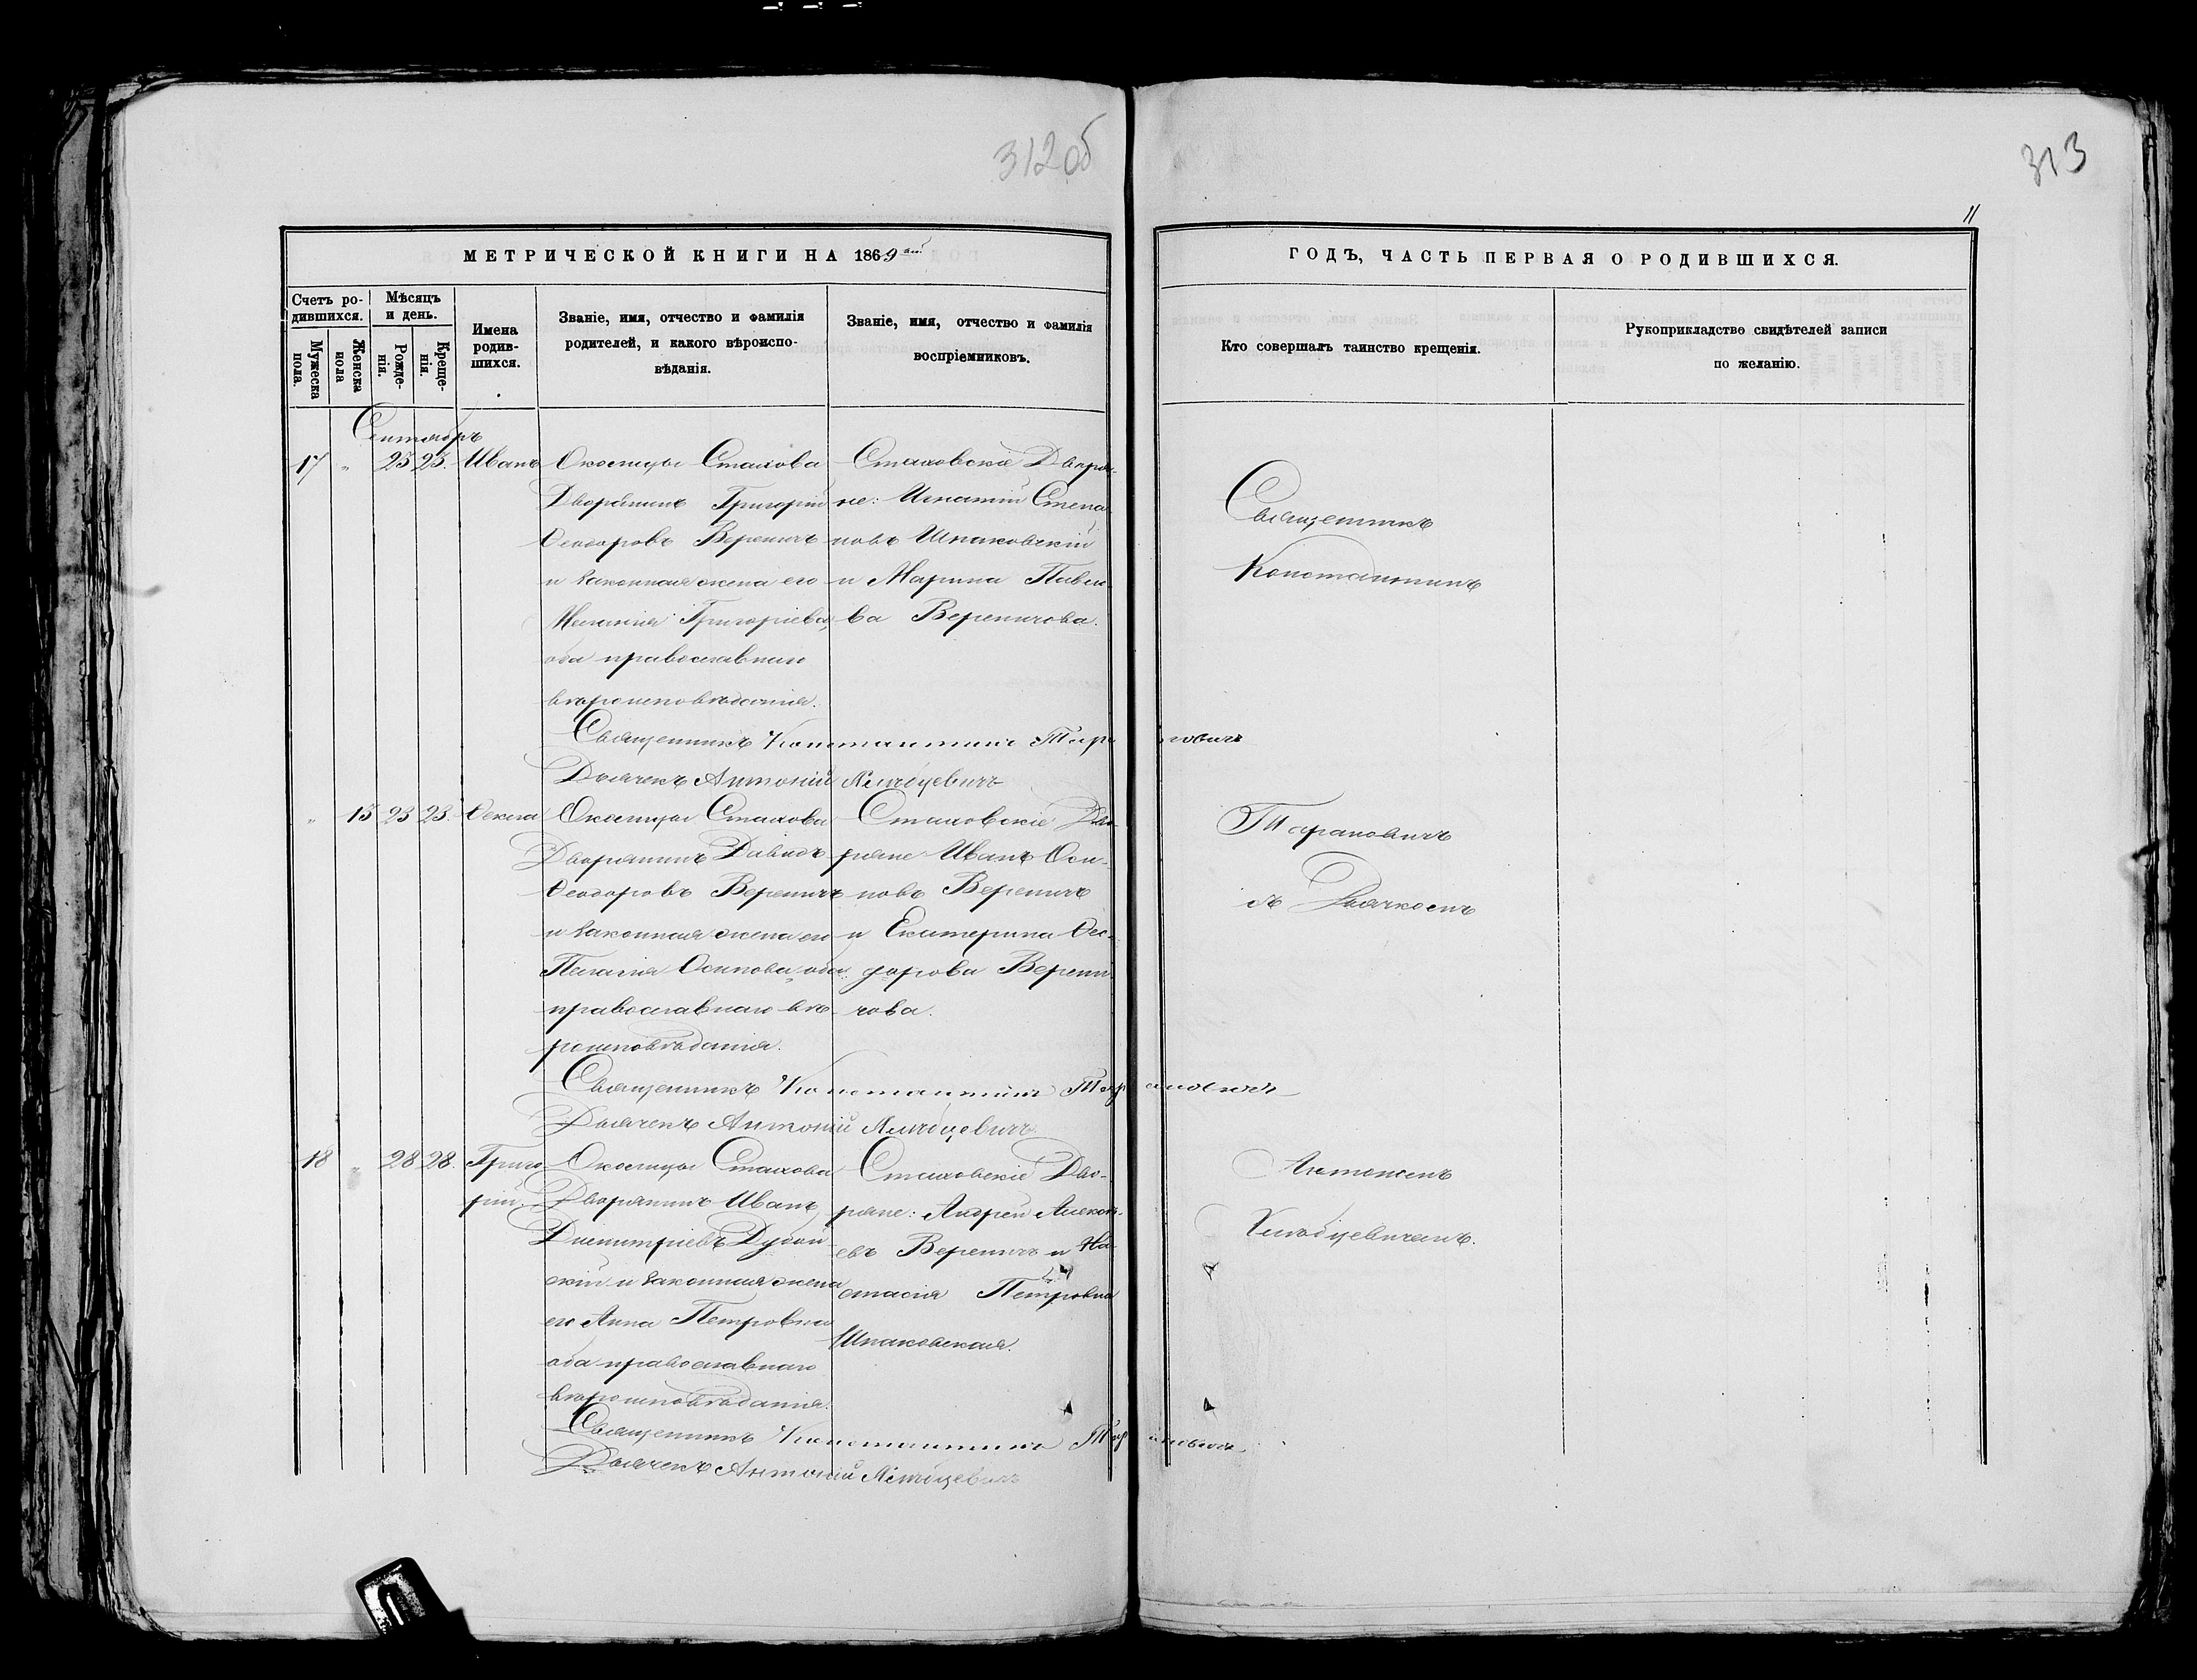 312об
313
11
МЕТРИЧЕСКОЙ КНИГИ НА 1869
ГОДЪ, ЧАСТЬ ПЕРВАЯ О РОДИВШИХСЯ.
Счетъ ро-
дившихся.
Мужеска
пола.
Женска
пола
Мѣсяцъ
и день.
Рожде-
нія.
Креще-
нія.
Имена
родив-
шихся.
Званіе, имя, отчество и фамилія
родителей, и какого вѣроиспо-
вѣданія.
Званіе, имя, отчество и фамилія
воспріемниковъ.
Кто совершалъ таинство крещенія.
Рукоприкладство свидѣтелей записи
по желанію.
Сентябрь
17 " 23 23. Иванъ
Околицы Стахова
Дворянинъ Григорій
Ѳеодоровъ Вереничъ
и законная жена его
Меланія Григоріева,
оба православнаго
вѣроисповѣданія.
Стаховскіе Дворя-
не: Игнатій Степа
новъ Шпаковскій
и Марина Павло
ва Вереничова.
Священникъ Константинъ Тарановичъ
Дьячекъ Антоній
" 15 23 23. Ѳекла
Околицы Стахова
Дворянинъ Давидъ
Ѳеодоровъ Вереничъ
и законная жена его
Пелагія Осипова, оба
православнаго вѣ
роисповѣданія.
Стаховскіе Дво-
ряне Иванъ Оси-
повъ Вереничъ
и Екатерина Ѳео-
дорова Верени
чова.
Священникъ Константинъ Тарановичъ
Дьячекъ Антоній
18 " 28 28. Григо
рій.
Околицы Стахова
Дворянинъ Иванъ
Димитріевъ Дубой
скій и законная жена
его Анна Петровна
оба православнаго
вѣроисповѣданія.
Стаховскіе Дво-
ряне: Андрей Алексѣ-
евъ Вереничъ и На-
стасія Петровна
Шпаковская.
Священникъ Константинъ Тарановичъ
Дьячекъ Антоній
Священникъ
Константинъ
Тарановичъ
съ Дьячкомъ
Антоніемъ